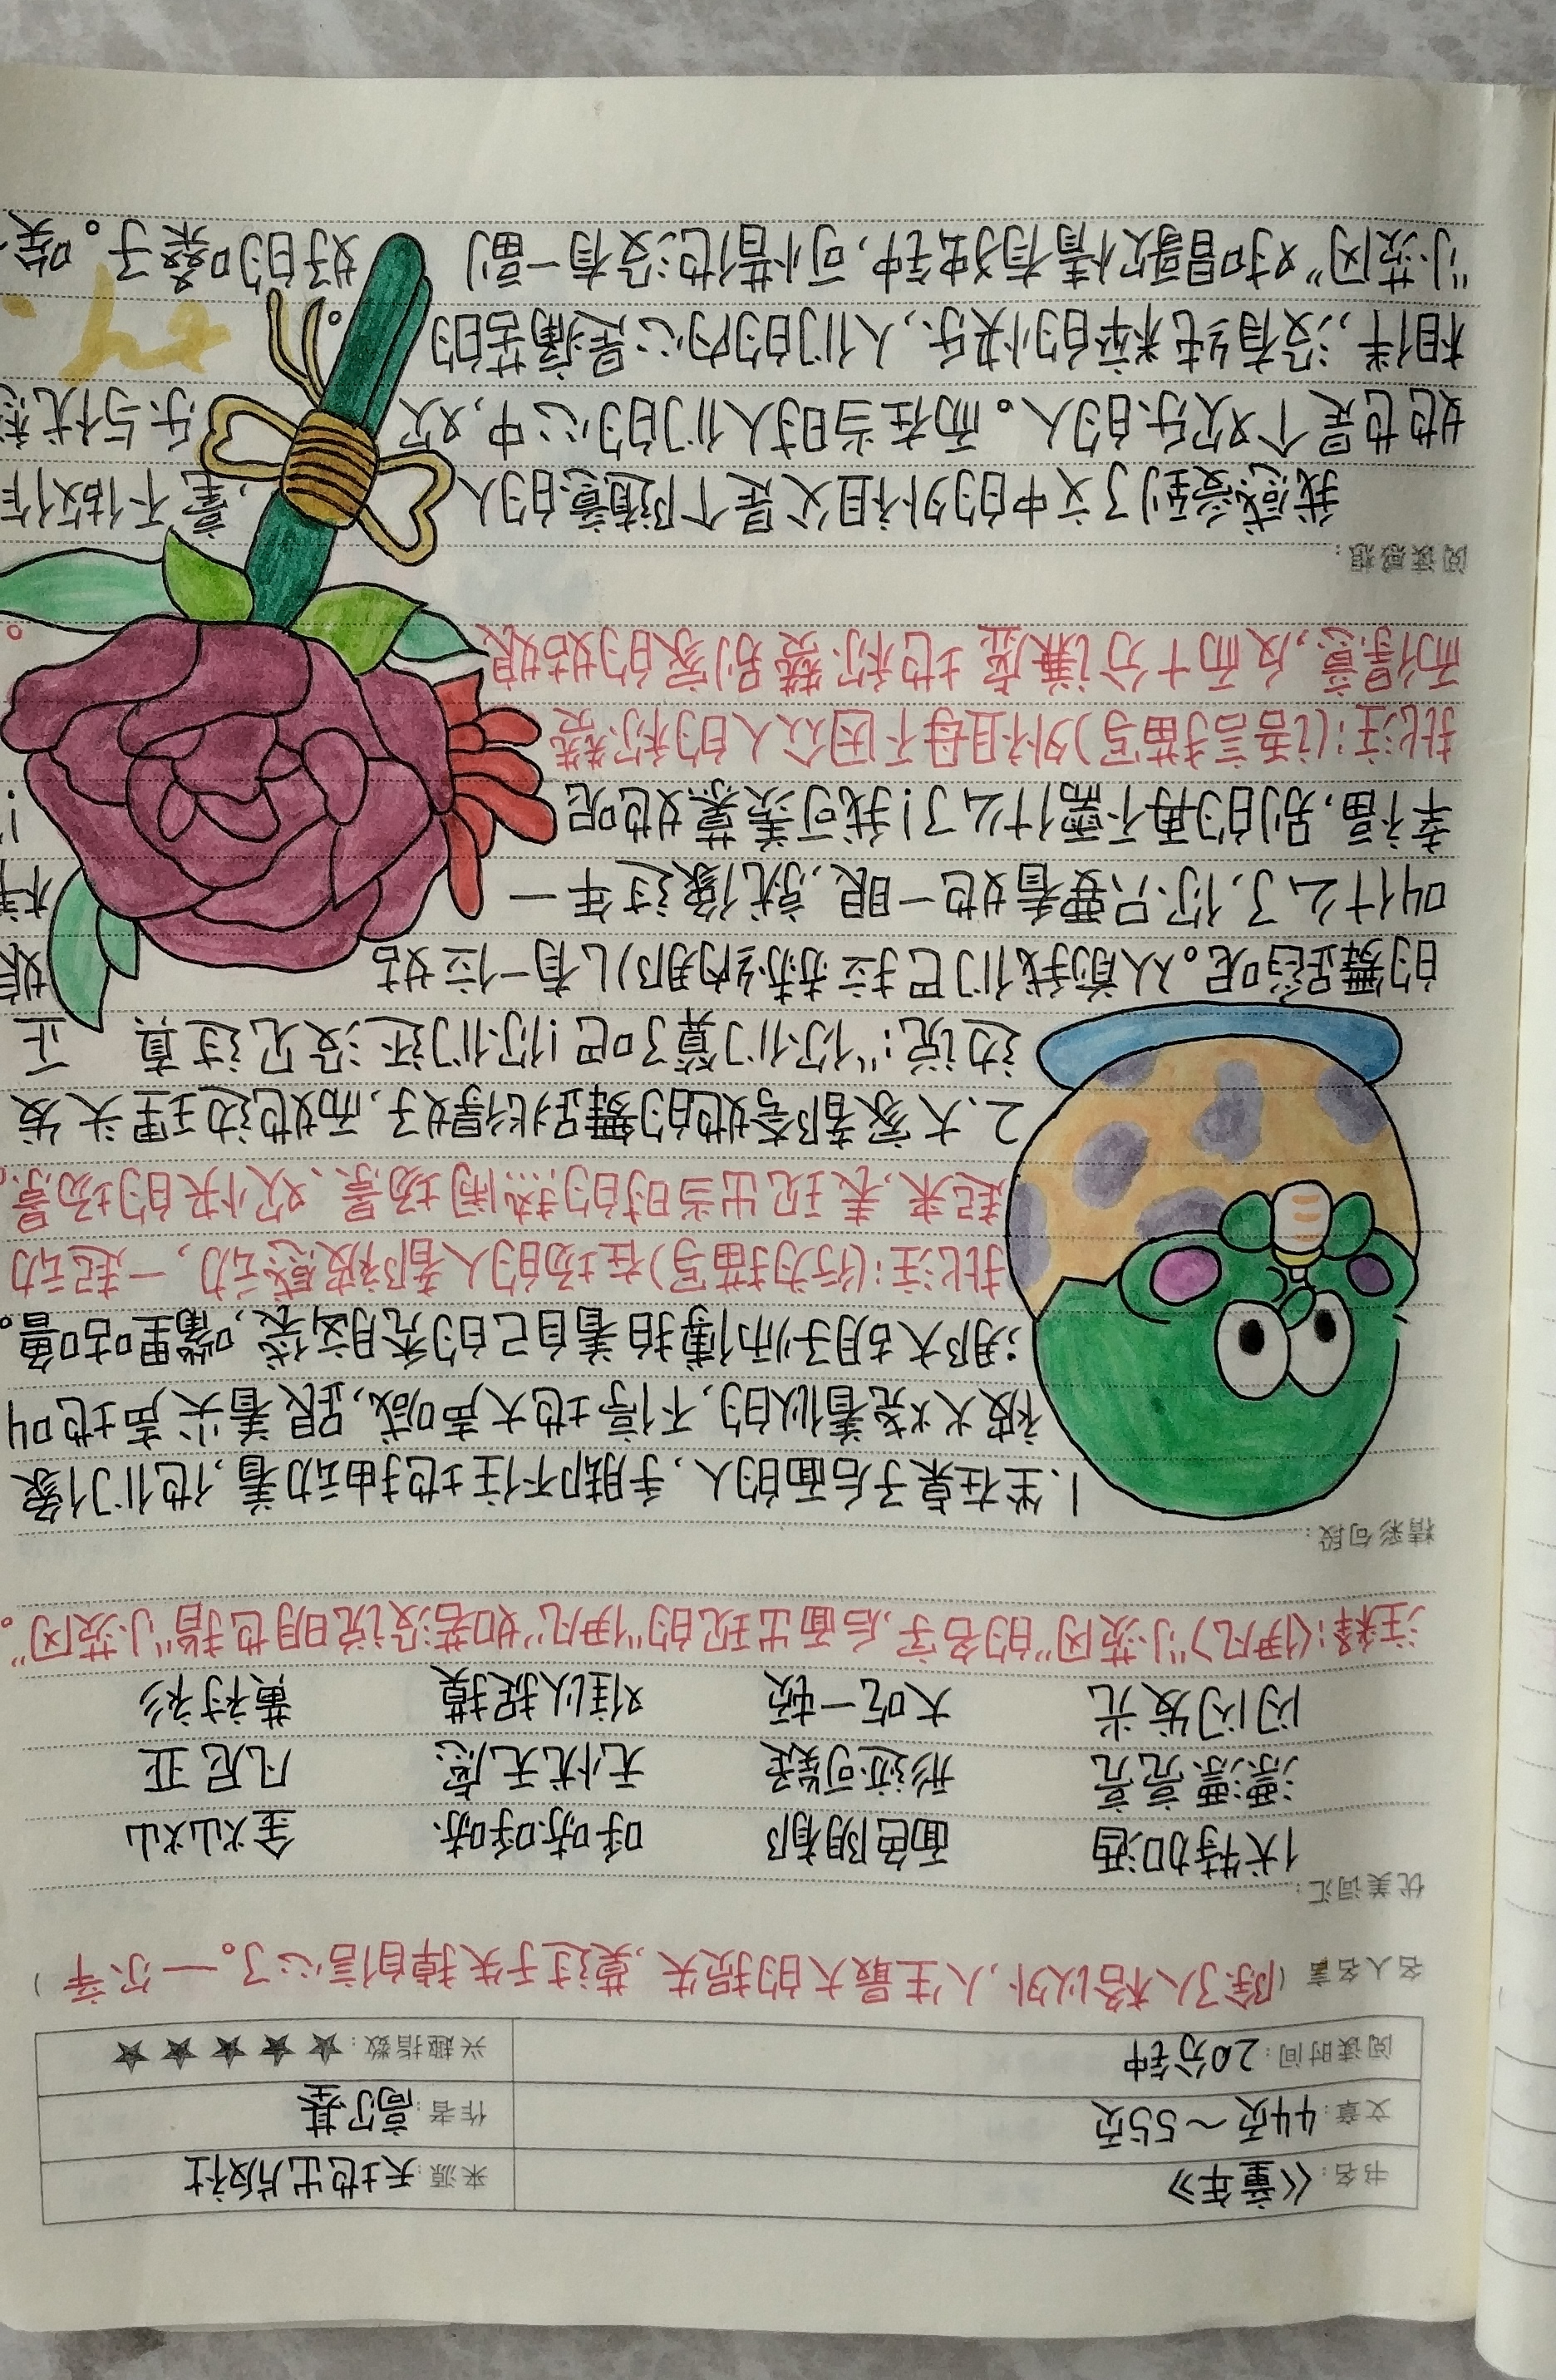 书名：《童年》 来源：天地出版社
文章：44页～55页 作者：高尔基
阅读时间：20分钟 兴趣指数：★★★★★
名人名言（除了人格以外，人生最大的损失，莫过于失掉自信心了。—尔辛）
优美词汇：
伏特加酒 面色阴郁 呼哧呼哧 金灿灿
漂漂亮亮 形迹可疑 无忧无虑 凡尼亚
闪闪发光 大吃一顿 难以捉摸 黄衬衫
注释：〈伊凡〉“小茨冈”的名字，后面出现的“伊凡”如若没说明也指“小茨冈”。
精彩句段：
1.坐在桌子后面的人，手脚不住地扭动着，他们像
被火烧着似的，不停地大声喊，跟着尖声地叫
；那大胡子师傅拍着自己的秃脑袋，嘴里咕噜。
批注：（行为描写）在场的人都被感动，一起动
起来，表现出当时的热闹场景、欢快的场景。
2.大家都夸她的舞跳得好，而她边理头发
边说：“你们算了吧！你们还没见过真 正
的舞蹈呢。从前我们巴拉赫纳那儿有一位姑 娘
叫什么了，你只要看她一眼，就像过年一 样
幸福，别的再不需什么了！我可羡慕她呢 ！”
批注：（语言描写）外祖母不因众人的称赞
而得意，反而十分谦虚地称赞别家的姑娘 。
阅读感想：
我感受到了文中的外祖父是个随意的人 ，毫不做作
她也是个欢乐的人。而在当时人们的心中，欢 乐与忧愁
相伴，没有纯粹的快乐，人们的内心是痛苦的 。
“小茨冈”对唱歌情有独钟，可惜他没有一副 好的嗓子。唉